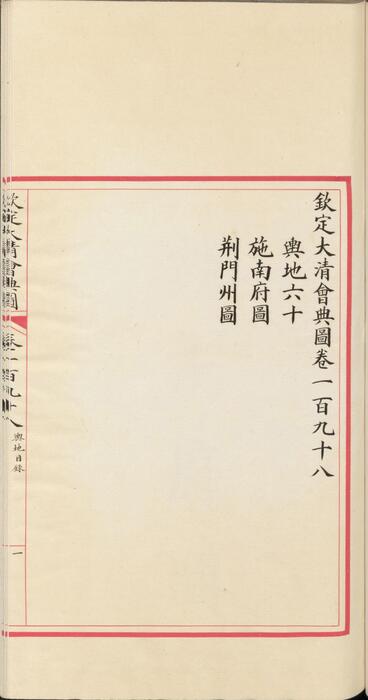 欽定大清會典圖卷一百九十八
輿地六十
施南府圖
荆門州圖
欽定大清會典圖
卷一百九十八
輿地目錄
一